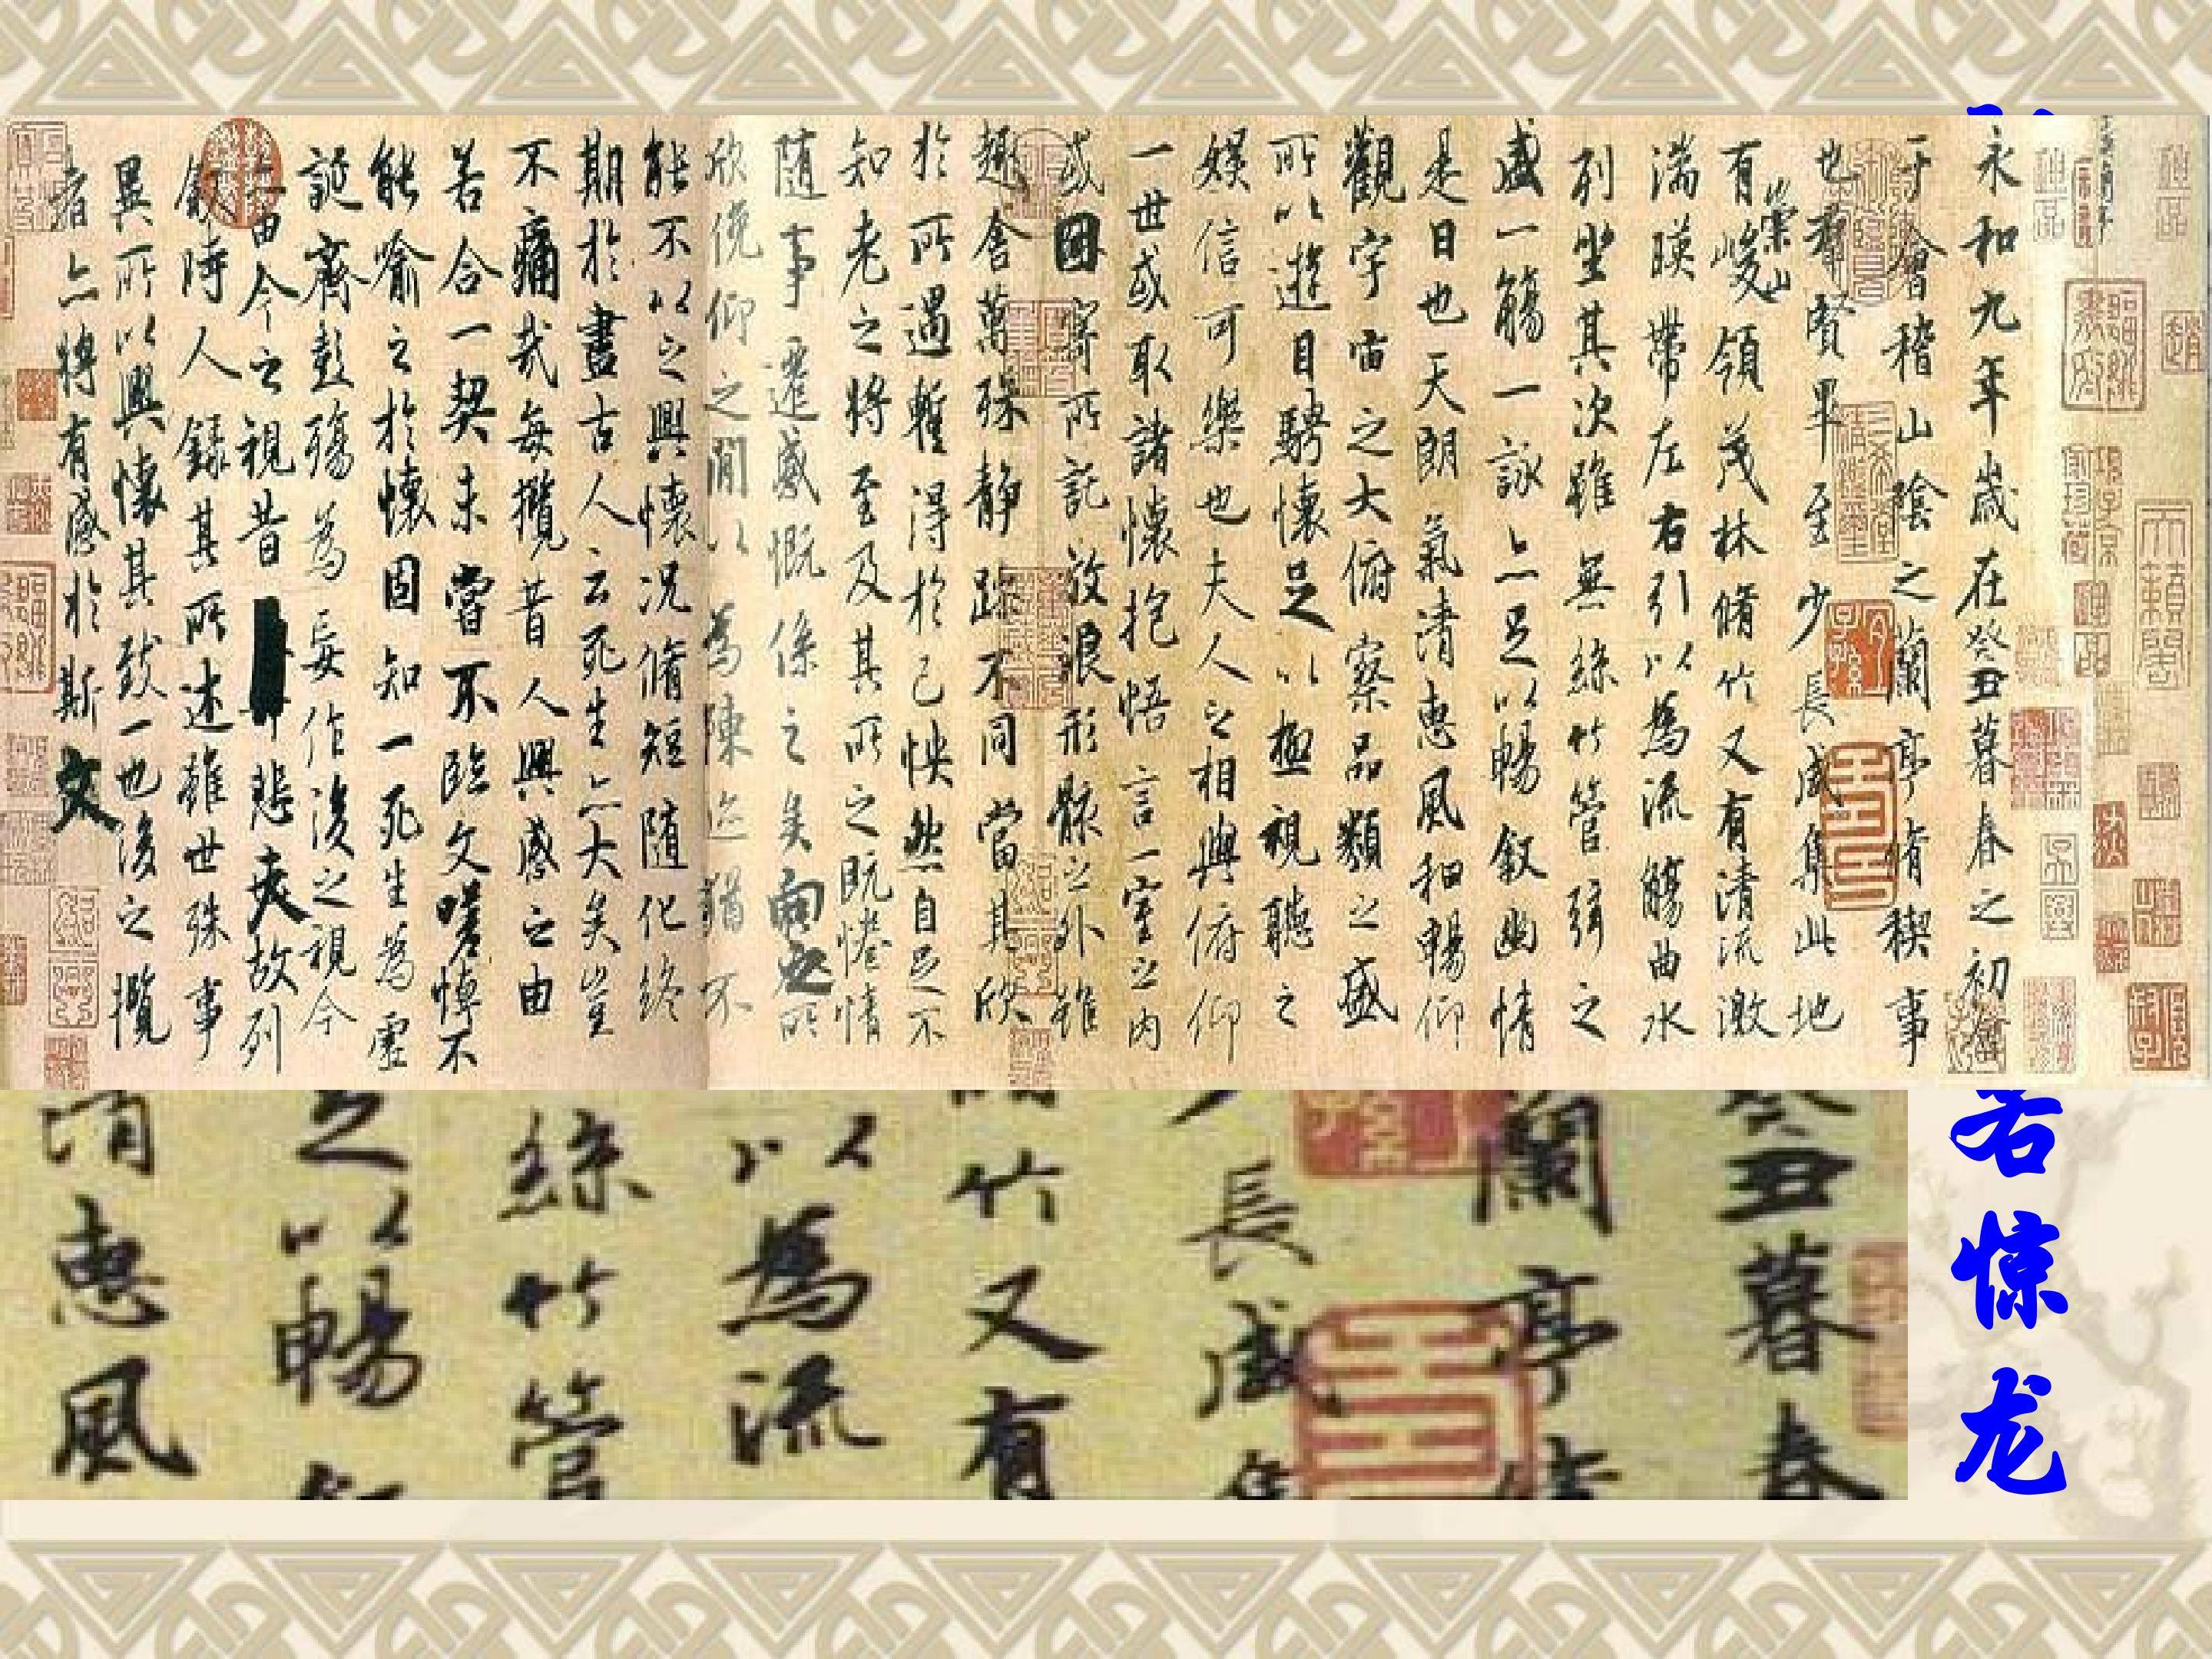 永和九年歲在癸丑暮春之初會
于會稽山陰之蘭亭脩稧事
也羣賢畢至少長咸集此地
有崇山峻領茂林脩竹又有清流激
湍暎帶左右引以為流觴曲水
列坐其次雖無絲竹管弦之
盛一觴一詠亦足以暢敘幽情
是日也天朗氣清惠風和暢仰
觀宇宙之大俯察品類之盛
所以遊目騁懷足以極視聽之
娛信可樂也夫人之相與俯仰
一世或取諸懷抱悟言一室之內
或因寄所託放浪形骸之外雖
趣舍萬殊靜躁不同當其欣
於所遇暫得於己怏然自足不
知老之將至及其所之既惓情
隨事遷感慨係之矣向之所
欣俛仰之閒以為陳迹猶不
能不以之興懷况脩短隨化終
期於盡古人云死生亦大矣豈
不痛哉每攬昔人興感之由
若合一契未嘗不臨文嗟悼不
能喻之於懷固知一死生為虛
誕齊彭殤為妄作後之視今
亦由今之視昔悲夫故列
敘時人錄其所述雖世殊事
異所以興懷其致一也後之攬
者亦將有感於斯文
癸丑暮春
蘭亭
長咸
竹又有
以為流
絲竹管
足以暢敘
清惠風
若惊龙